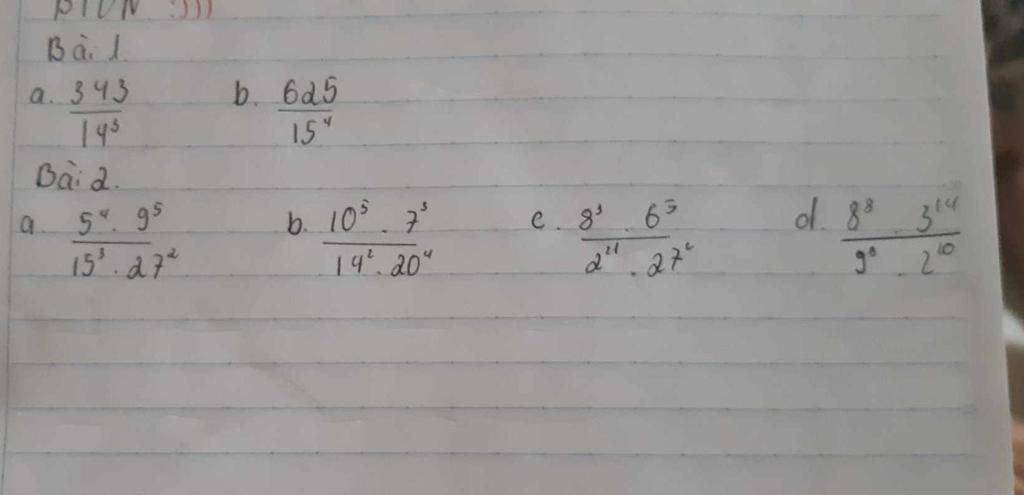 :)))
Bài 1.
a. 343/14³ b. 625/15⁴
Bài 2.
a. 5⁴ . 9⁵ / 15³ . 27² b. 10⁵ . 7³ / 14² . 20⁴ c. 8³ . 6⁵ / 2¹¹ . 27² d. 8⁸ . 3¹⁴ / 9⁸ . 2¹⁰